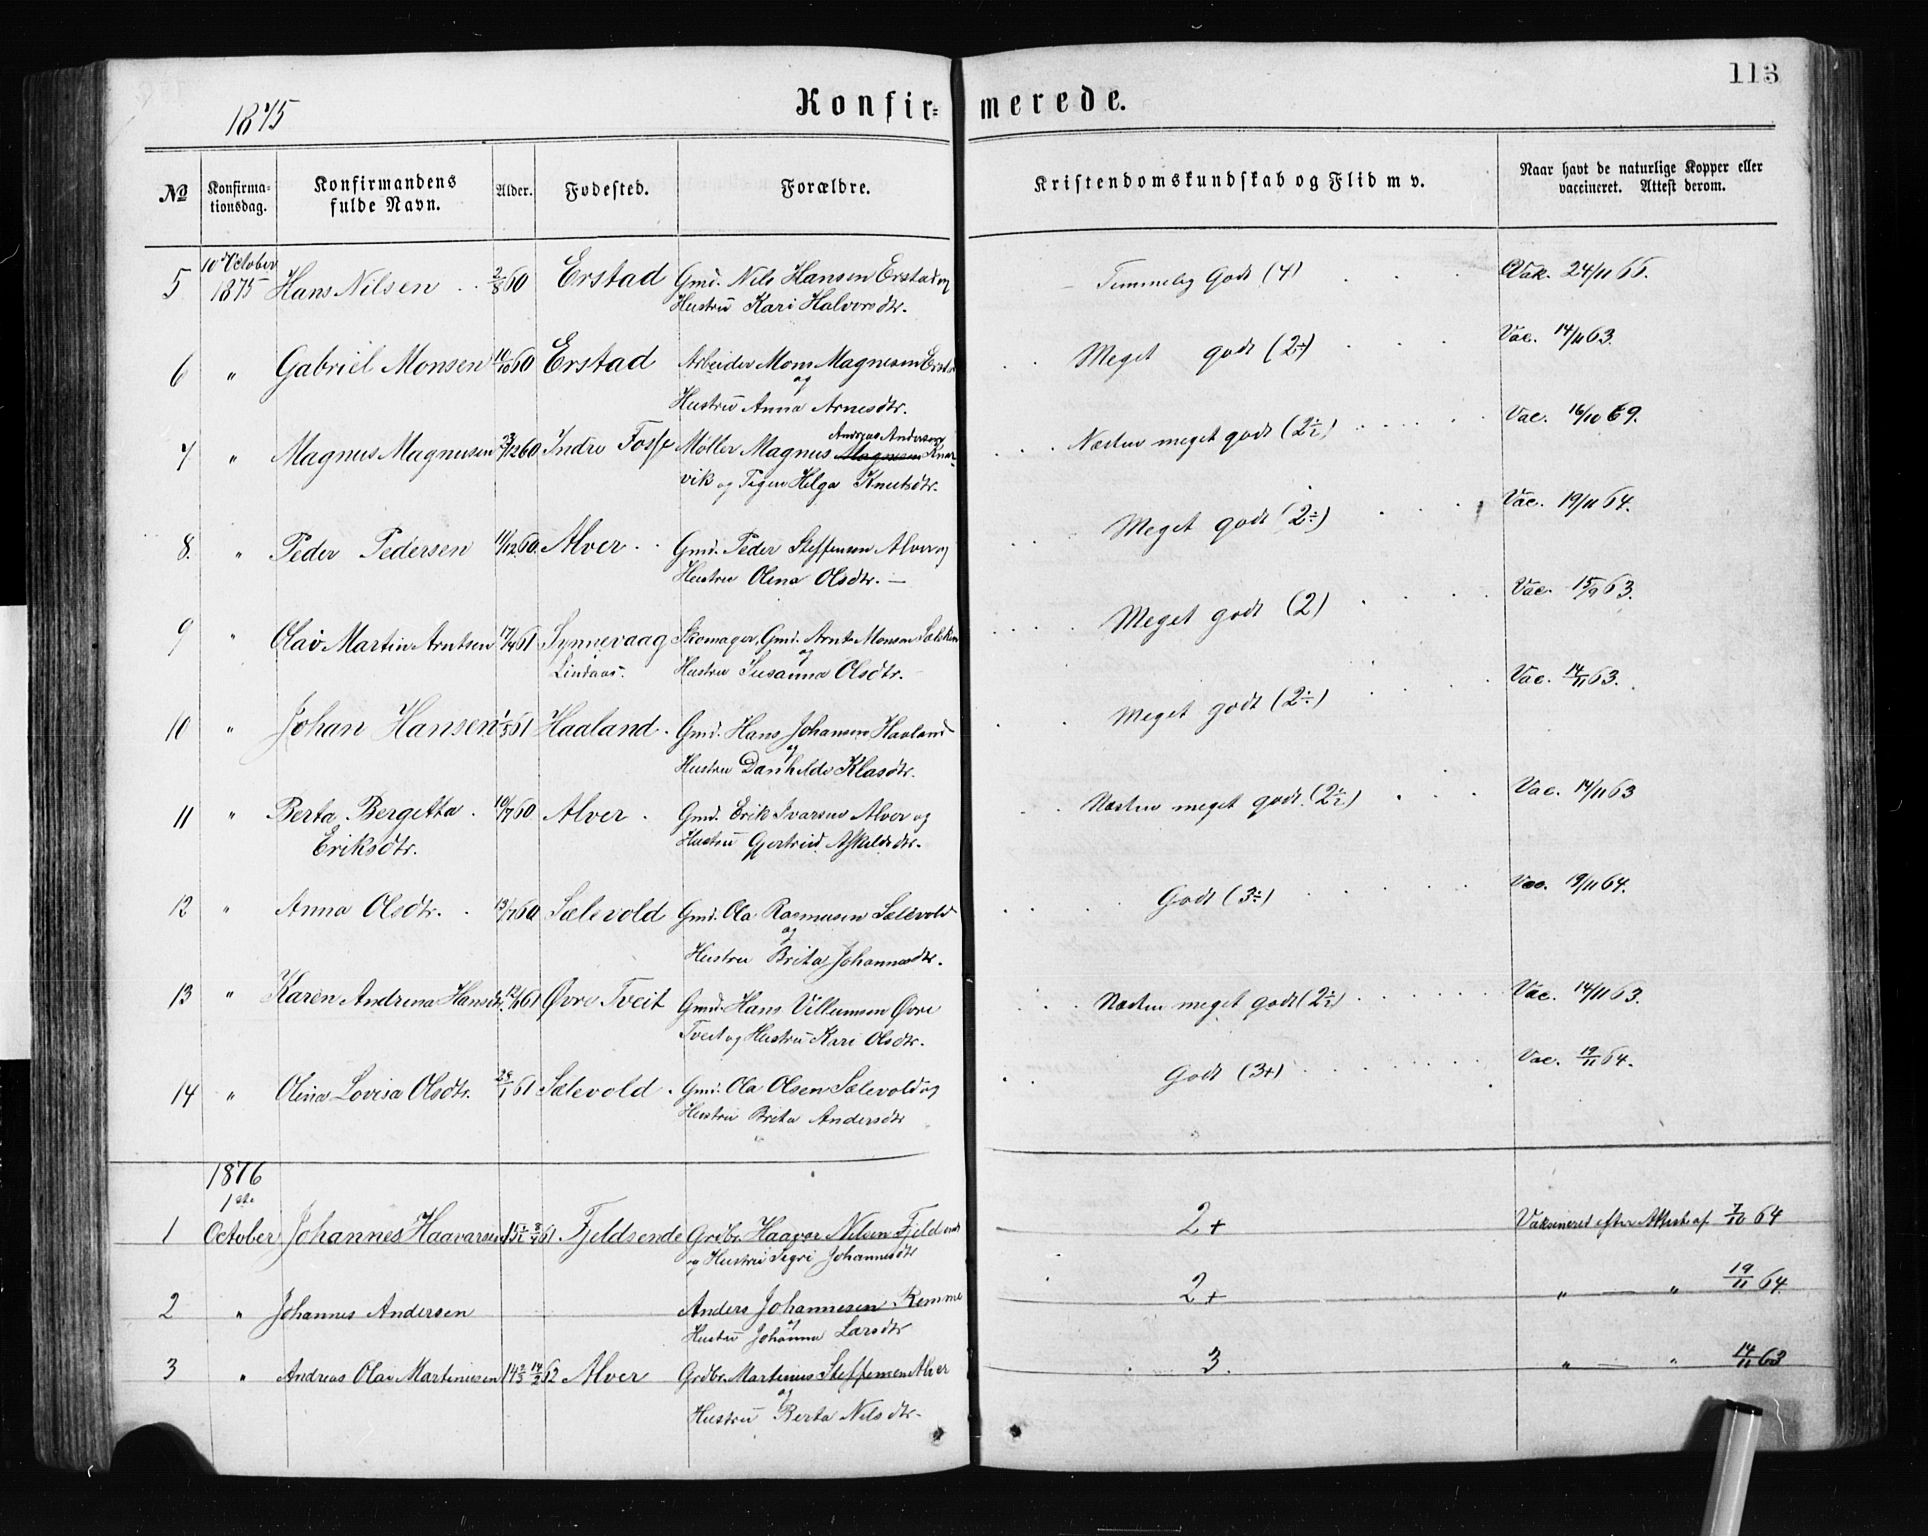 113
1875
Konfir= merede.
№ Konfirma-tionsdag. Konfirmandens fulde Navn. Alder. Fødested. Forældre. Kristendomskundskab og Flid m v. Naar havt de naturlige Kopper eller vaccineret. Attest derom.
10 October
5 1875 Hans Nilsen 2/8 60 Erstad Gmd. Nils Hansen Erstad og Temmelig Godt (4) Vak. 24/11 65.
Hustru Kari Halvorsdtr.
6 " Gabriel Monsen 11/10 60 Erstad Arbeider Mons Magnesen Erstad Meget godt (2÷) Vac. 14/11 63.
og
Hustru Anna Arnesdtr.
Andreas Andersen
7 " Magnus Magnusen 23/12 60 Indre Fosse Møller Magnus Magnusen Knar- Næsten meget godt (2½) Vac. 16/10 69.
vik og Pigen Helga Knutsdtr.
8. " Peder Pedersen 11/12 60. Alver Gmd. Peder Steffensen Alver og Meget godt (2÷) Vac. 19/11 64.
Hustru Olina Olsdtr. —
9 " Olai Martin Arntsen 17/4 61 Synnevaag Skomager, Gmd. Arnt Monsen Meget godt (2) Vac. 15/9 63.
og
Lindaas. Hustru Susanna Olsdtr. —
10 " Johan Hansen 1/5 61 Haaland Gmd. Hans Johansen Haaland Meget godt (2÷) Vac. 14/11 63.
og
Hustru Danhilde Klasdtr.
11 " Berta Bergetta 10/7 60 Alver Gmd. Erik Ivarsen Alver og Næsten meget godt (2½) Vac. 14/11 63
Eriksdtr. Hustru Gjertrud Askildsdtr.
12 " Anna Olsdtr. 19/7 60 Sælevold Gmd. Ola Rasmusen Sælevold Godt (3÷) Vac. 19/11 64.
og
Hustru Brita Johannesdtr.
13 " Karen Andrina Hansdtr. 12/1 61 Øvre Tveit Gmd. Hans Villumsen Øvre Næsten meget godt (2½) Vac. 14/11 63.
Tveit og Hustru Kari Olsdtr.
14 " Olina Lovisa Olsdtr. 28/1 61 Sælevold Gmd. Ola Olsen Sælevold og Godt (3+) Vac. 19/11 64.
Hustru Brita Andersdtr
1876
1ste
1 October Johannes Haavarsen 61. Fjeldsende Grdbr. Haavar Nilsen Fjeldsende 2+ Vaksineret efter Attest af 7/10 64
og Hustru Sigri Johannesdtr
2 " Johannes Andersen Anders Johannesen Remme 2+ " — " 19/11 64.
og
Hustru Johanna Larsdtr
3 " Andreas Olai Martinusen 14 2/3 14/2 62 Alver Grdbr. Martinus Steffensen Alver 3. " — " 14/11 63
og
Hustru Berta Nilsdtr.